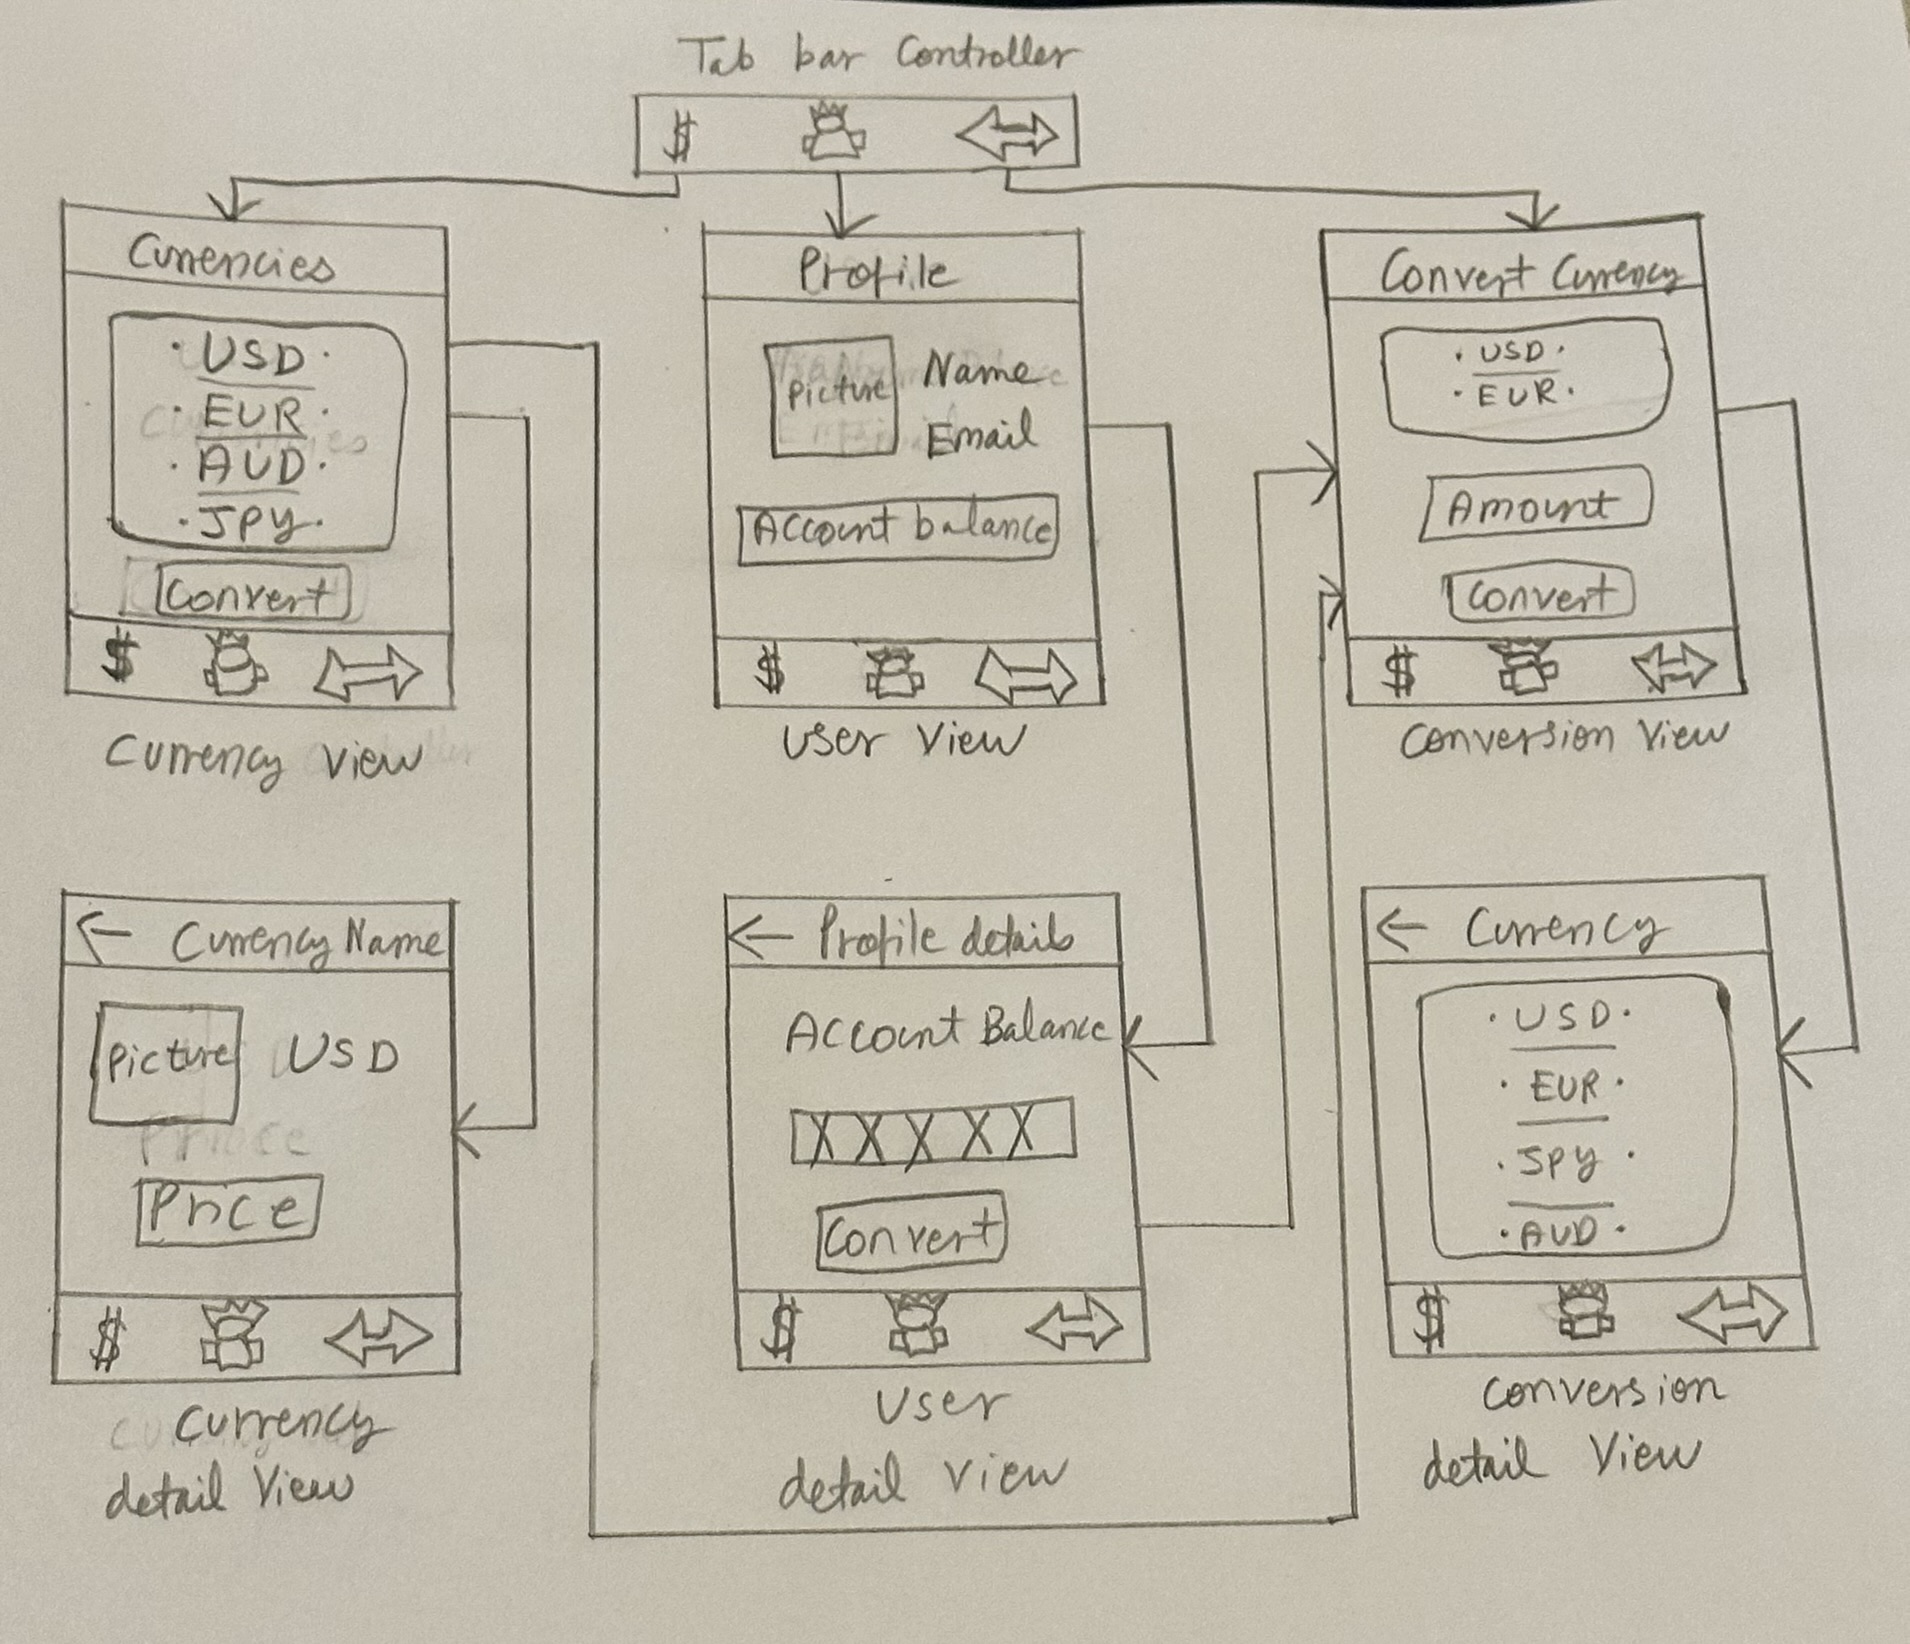 Tab bar Controller
$
Currencies
· USD ·
· EUR ·
· AUD ·
· JPY ·
Convert
$
Currency View
Profile
Picture
Name
Email
Account balance
$
User View
Convert Currency
· USD ·
· EUR ·
Amount
Convert
$
Conversion View
← Currency Name
Picture USD
Price
$
Currency
detail View
← Profile details
Account Balance
XXXXX
Convert
$
User
detail View
← Currency
· USD ·
· EUR ·
· JPY ·
· AUD ·
$
Conversion
detail View